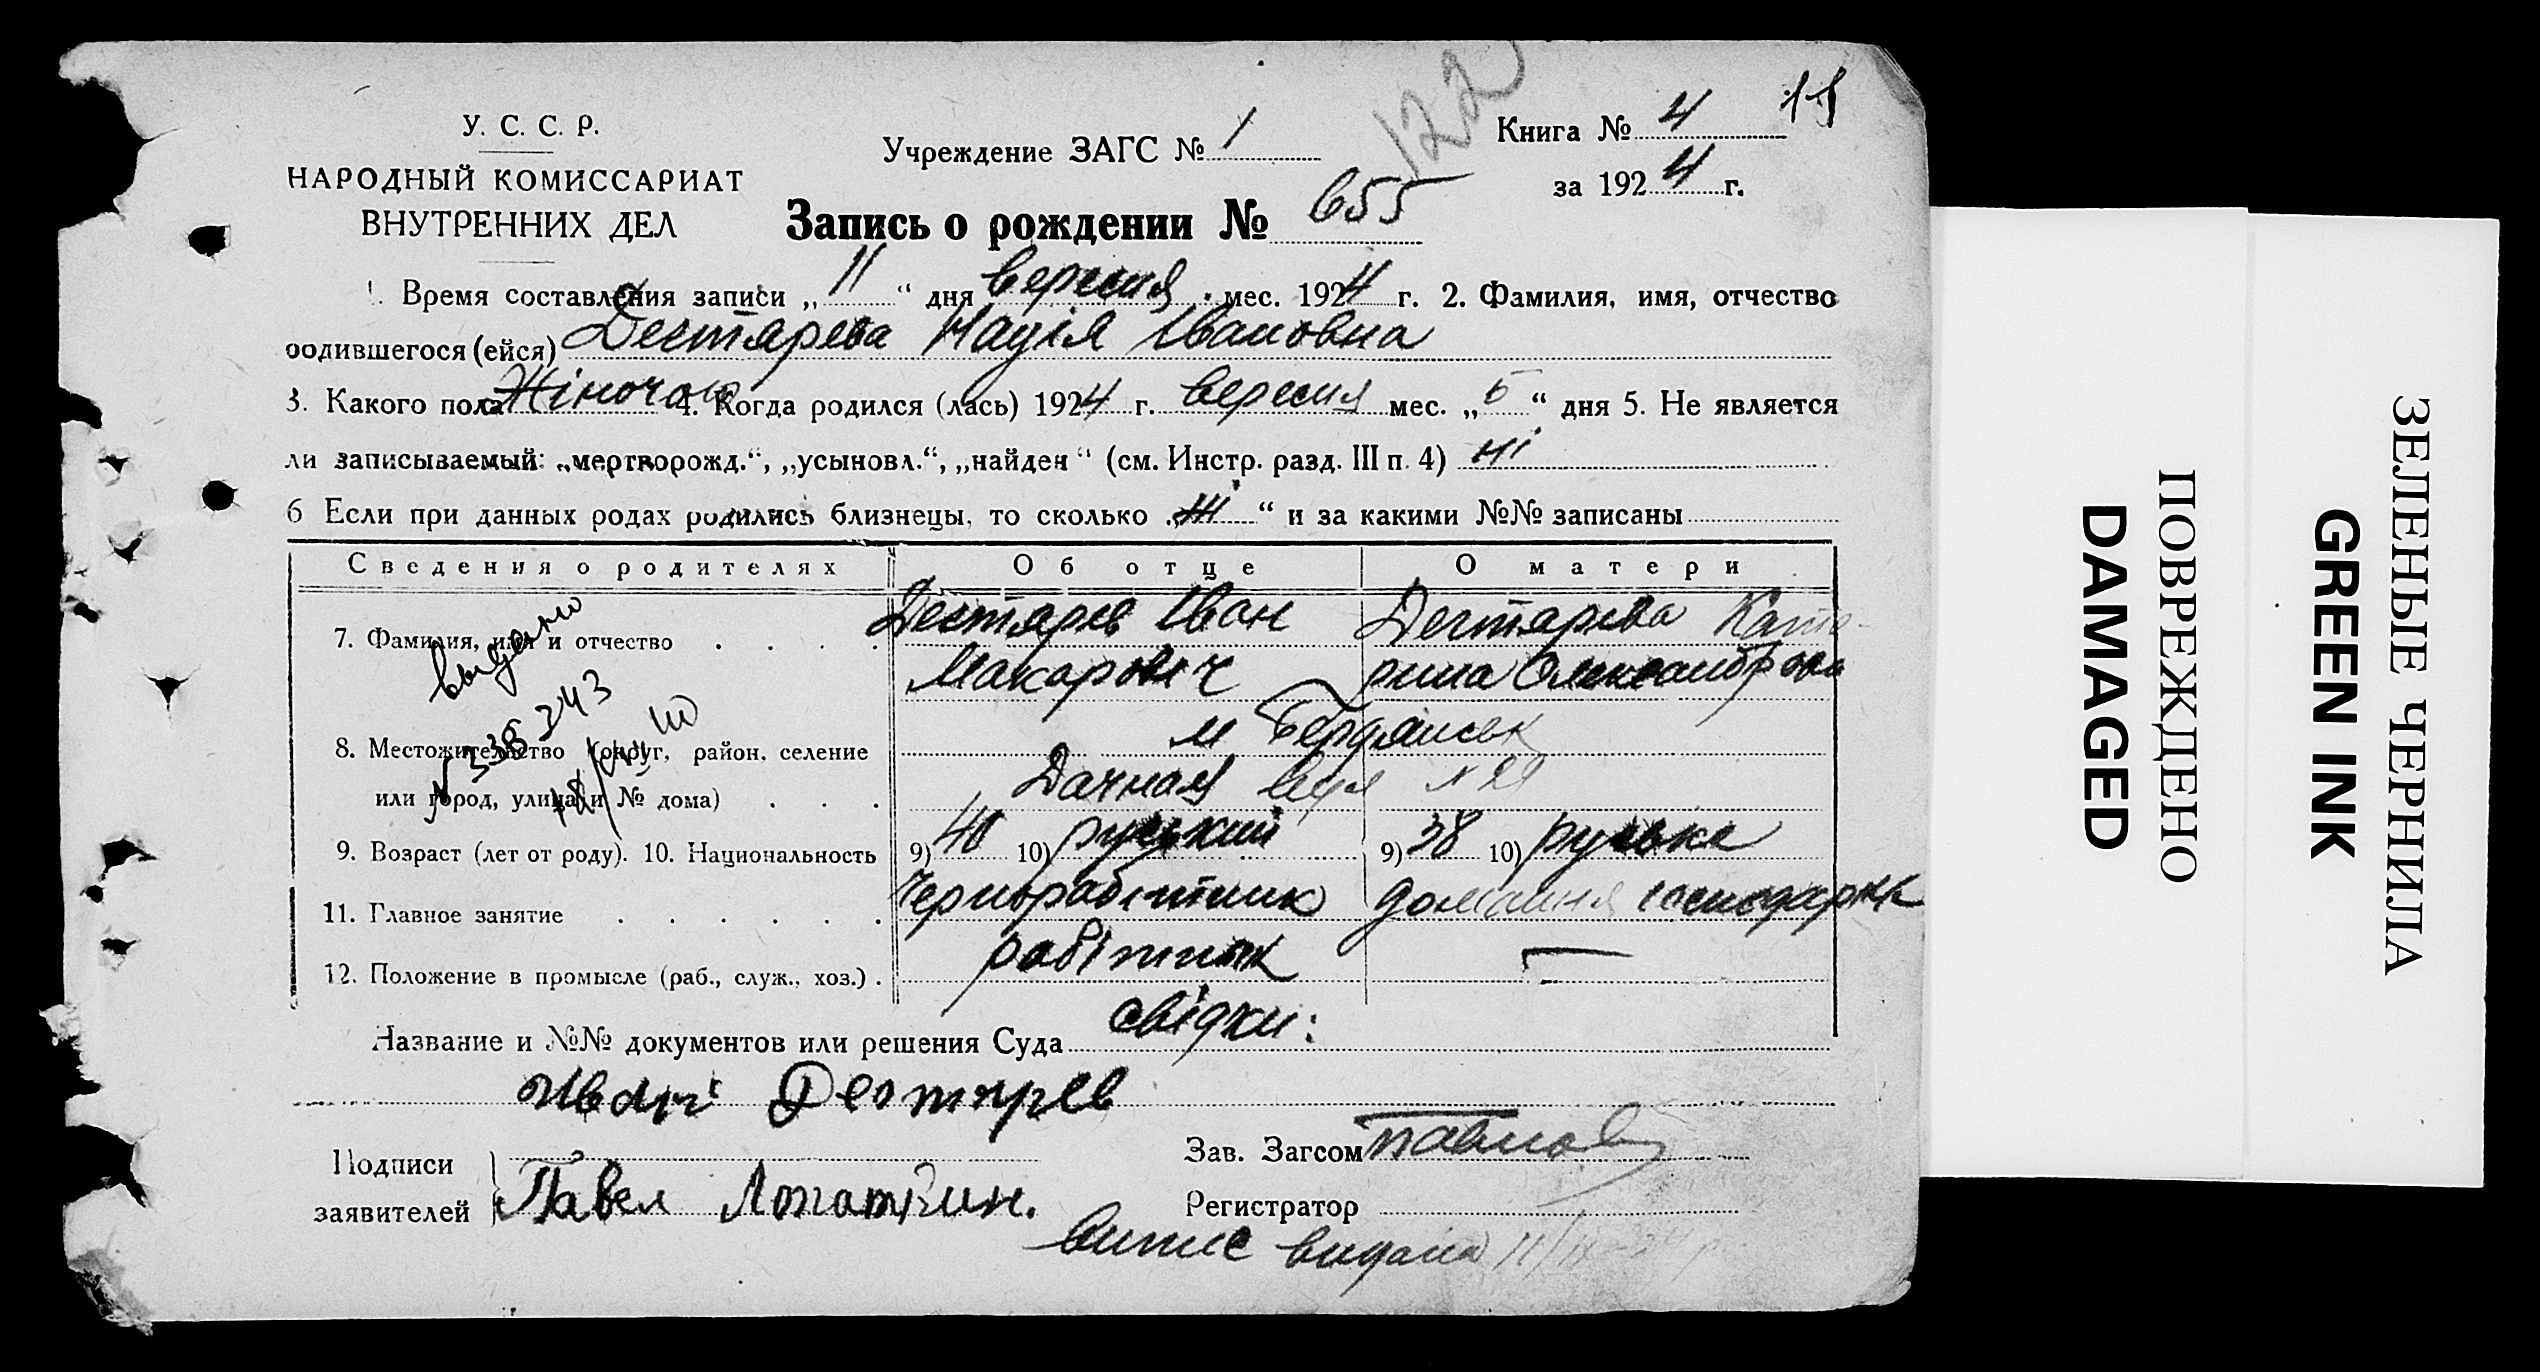 122
11
У. С. С. Р.
НАРОДНЫЙ КОМИССАРИАТ
ВНУТРЕННИХ ДЕЛ
Учреждение ЗАГС № 1
Книга № 4
за 1924 г.
Запись о рождении № 655
1. Время составления записи „11“ дня вересня мес. 1924 г. 2. Фамилия, имя, отчество
родившегося (ейся) Дегтярева Надія Івановна
3. Какого пола Жіночого 4. Когда родился (лась) 1924 г. вересня мес. „5“ дня 5. Не является
ли записываемый: „мертворожд.“, „усыновл.“, „найден“ (см. Инстр. разд. III п. 4) ні
6 Если при данных родах родились близнецы, то сколько „ні“ и за какими №№ записаны
Сведения о родителях Об отце О матери
7. Фамилия, имя и отчество . . . . Дегтярев Іван Дегтярева Кате-
Макарович рина Олександровна
выдано
№ 338243
8. Местожительство (округ, район, селение м Бердянськ
или город, улица и № дома) . . . Дачная вул № 29
9. Возраст (лет от роду). 10. Национальность 9) 40 10) руський 9) 38 10) руська
11. Главное занятие . . . . . . Чернорабітник домашня господарка
12. Положение в промысле (раб., служ., хоз.) . робітник —
Название и №№ документов или решения Суда свідки:
Иван Дегтярев
Подписи
заявителей
Павел Лопаткин.
Зав. Загсом Павлов
Регистратор
Випис видана 11/IX-24 р
ЗЕЛЕНЫЕ ЧЕРНИЛА
GREEN INK
ПОВРЕЖДЕНО
DAMAGED